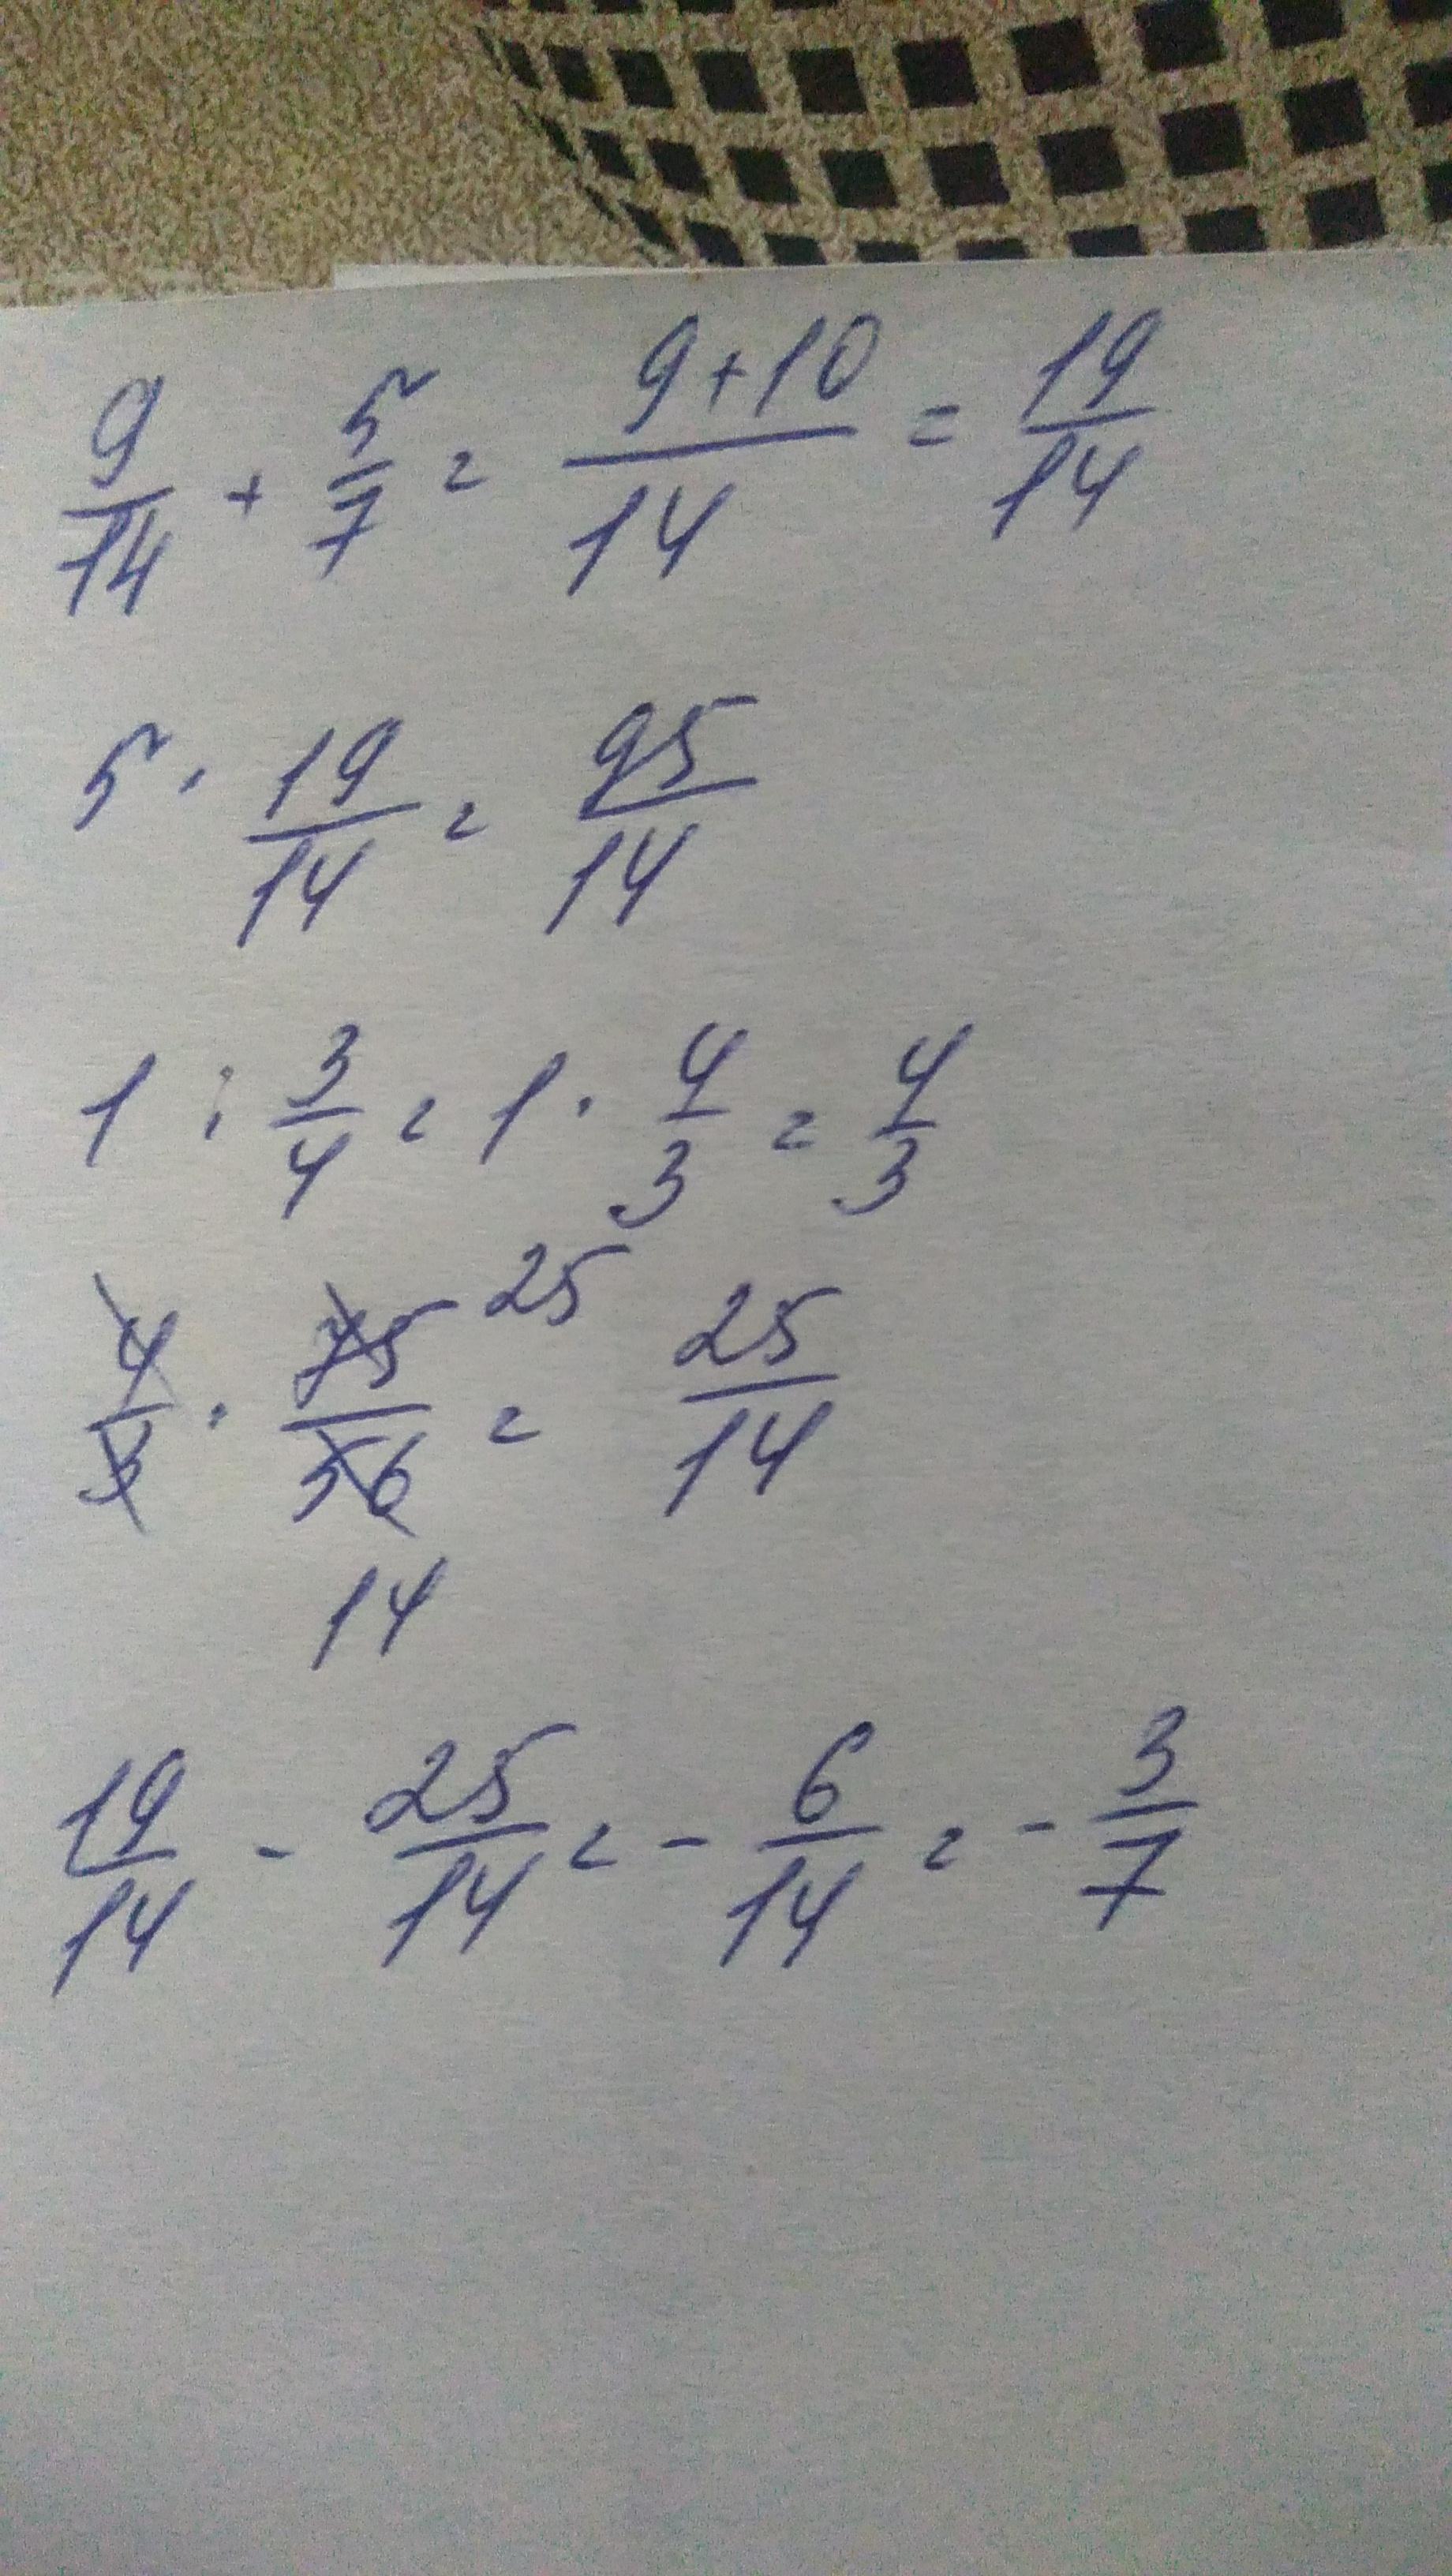 9/14 + 5/7 = (9+10)/14 = 19/14
5 · 19/14 = 95/14
1 : 3/4 = 1 · 4/3 = 4/3
4/3 · 75/56 = 25/14
25
14
19/14 - 25/14 = - 6/14 = - 3/7